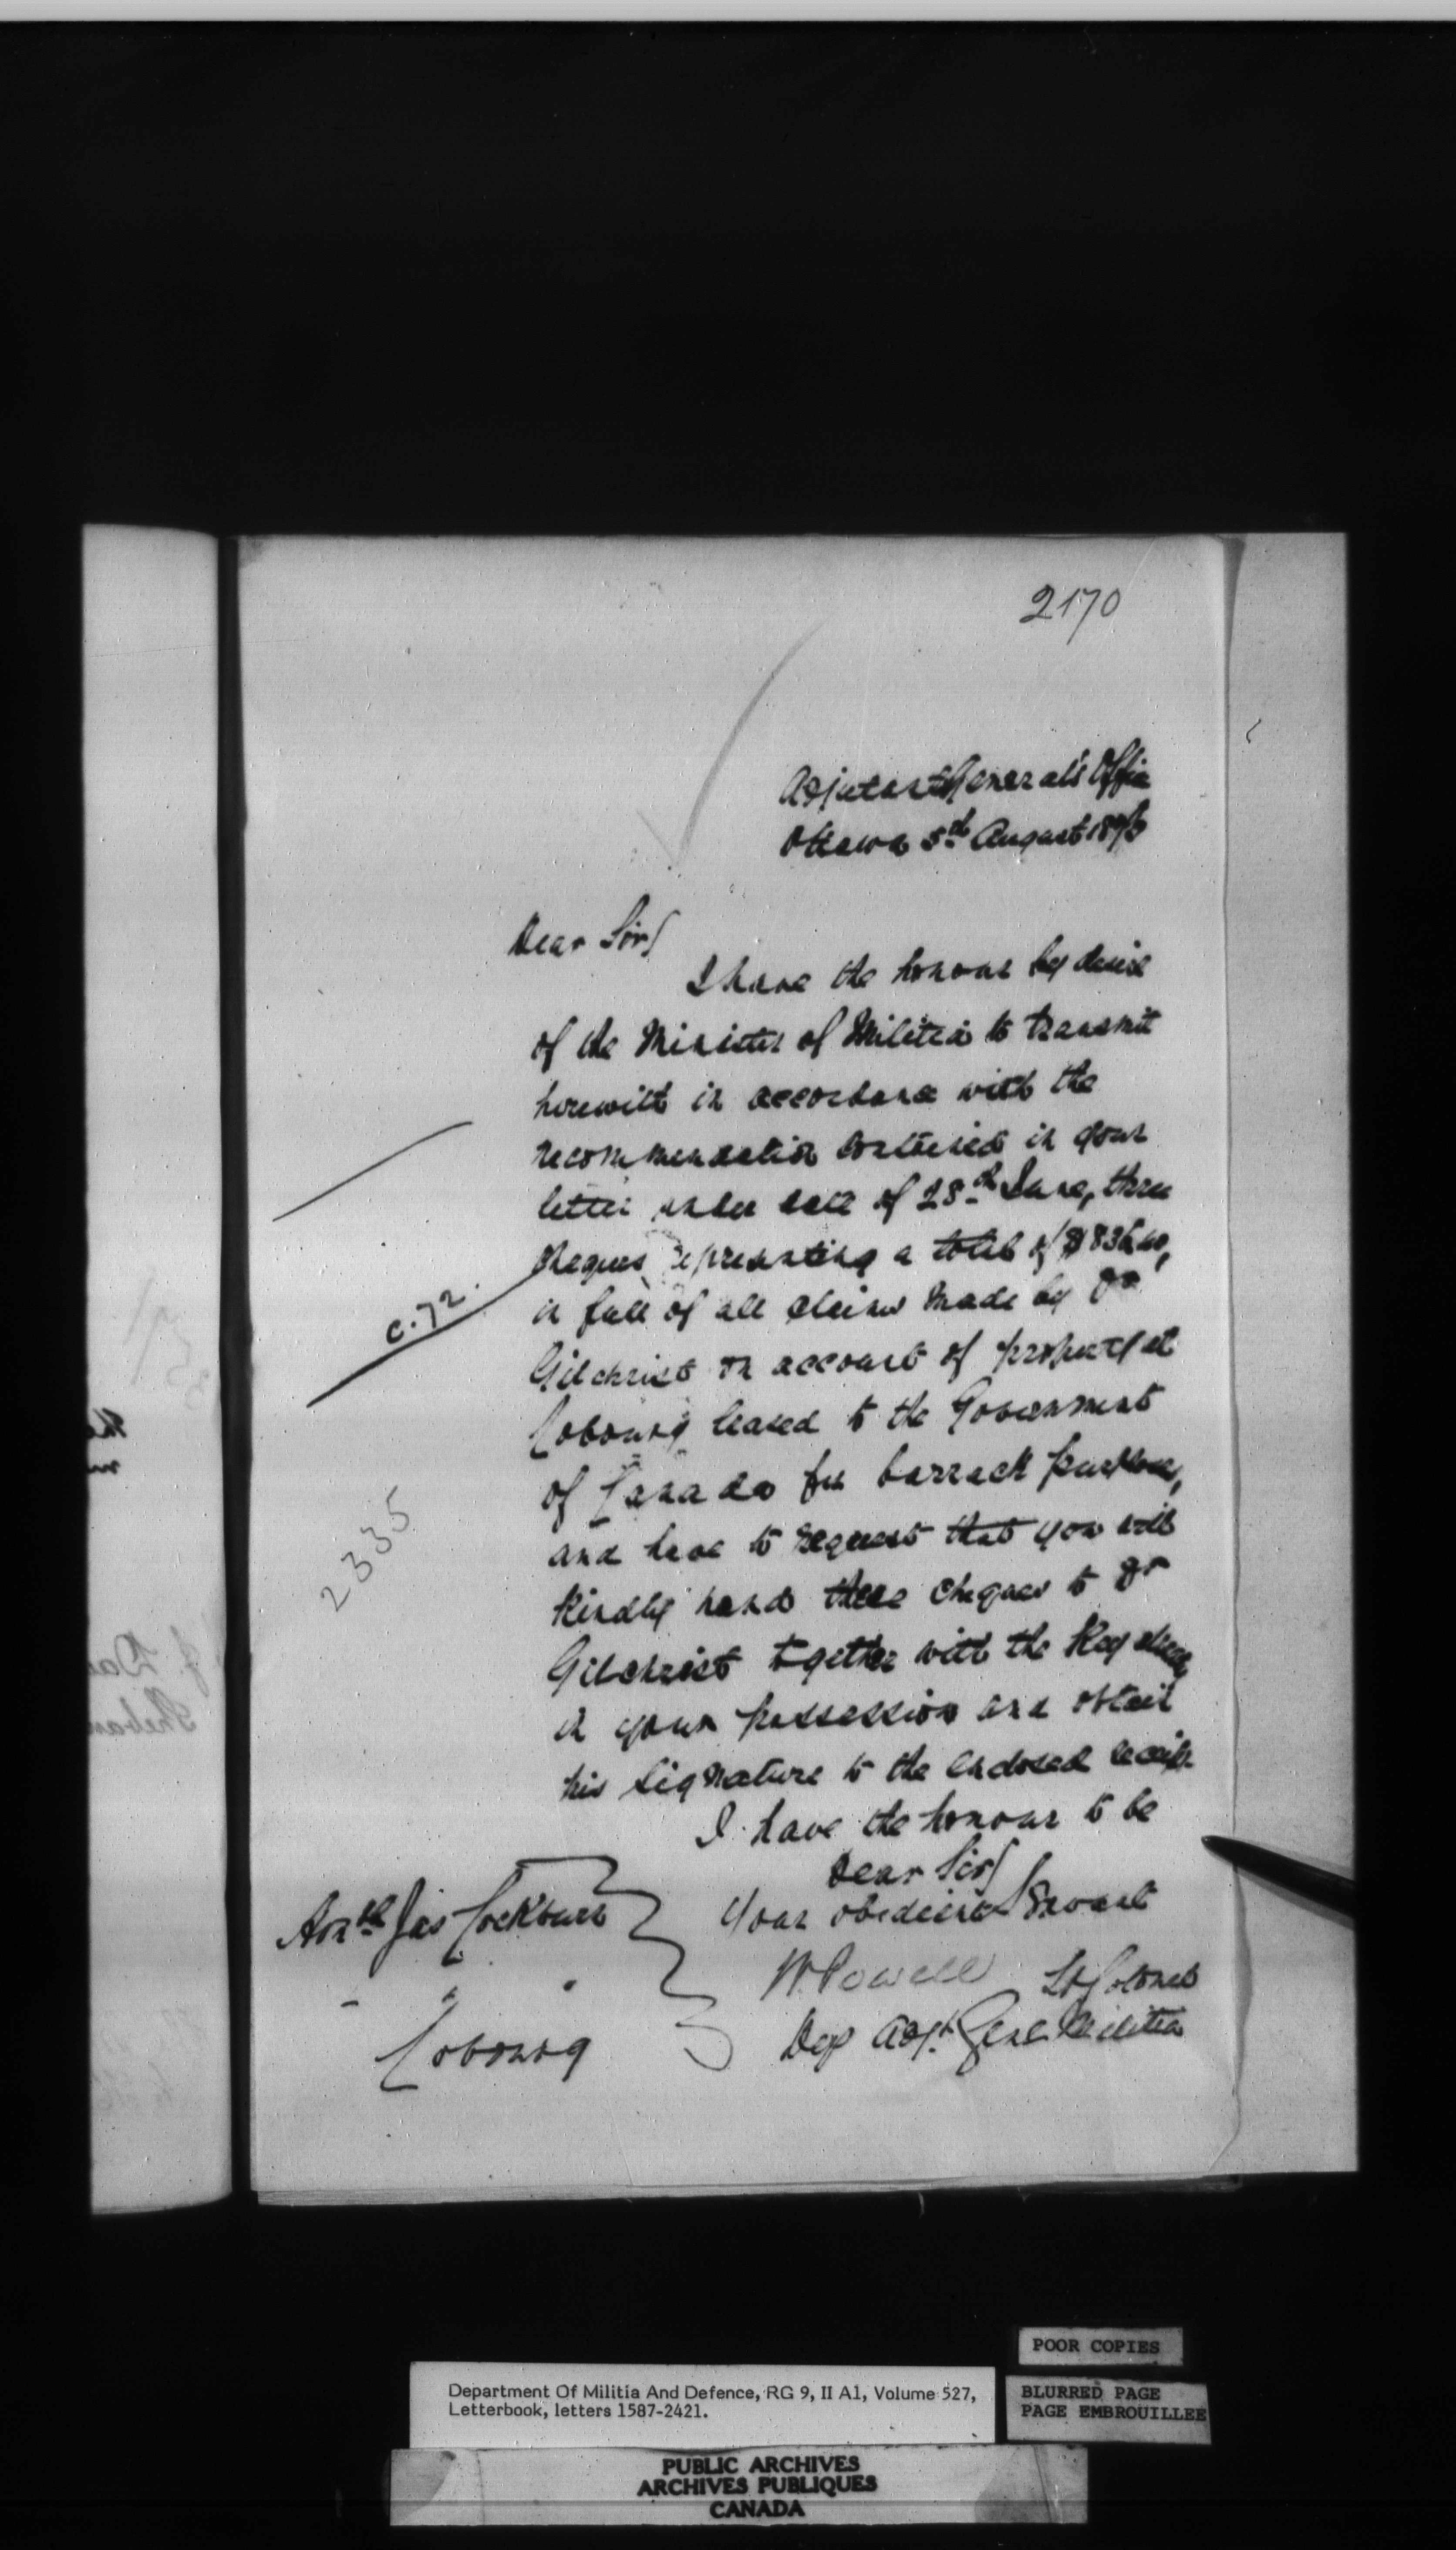 2170
Adjutant General's Office
Ottawa 5th August 1873
Dear Sir/
I have the honour by desire
of the Minister of Militia to transmit
herewith in accordance with the
recommendation contained in your
letter under date of 28th June, three
cheques representing a total of
in full of all claims made by Dr
Gilchrist on account of property at
Cobourg leased to the Government
of Canada for barrack purposes,
and have to request that you will
kindly hand these cheques to Dr
Gilchrist together with the Key
in your possession and obtain
his signature to the enclosed receipt.
I have the honour to be
Dear Sir/
Your obedient Servant
W Powell Lt Colonel
Dep Adjt Genl Militia
Honble Jas Cockburn
" " "
Cobourg
C.72.
2335
POOR COPIES
BLURRED PAGE
PAGE EMBROUILLEE
Department Of Militia And Defence, RG 9, II A1, Volume 527,
Letterbook, letters 1587-2421.
PUBLIC ARCHIVES
ARCHIVES PUBLIQUES
CANADA